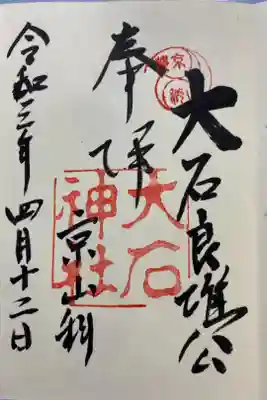 大石良雄公
奉拝
京山科
大石
神社
令和三年四月十二日